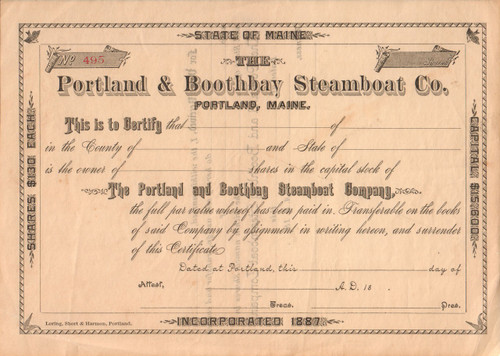 STATE OF MAINE
No 495
THE
Portland & Boothbay Steamboat Co.
PORTLAND, MAINE.
This is to Certify that of
in the County of and State of
is the owner of shares in the capital stock of
The Portland and Boothbay Steamboat Company,
the full par value whereof has been paid in. Transferable on the books
of said Company by assignment in writing hereon, and surrender
of this Certificate.
Dated at Portland, this day of
Attest, A.D. 18
Treas. Pres.
Loring, Short & Harmon, Portland.
INCORPORATED 1887.
SHARES $130 EACH
CAPITAL $15,600